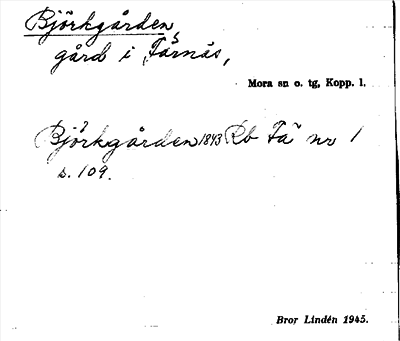 Björkgården
gård i Färnäs,
Mora sn o. tg, Kopp. l.
Björkgården 1843 Rb Fä nr 1
s. 109.
Bror Lindén 1945.